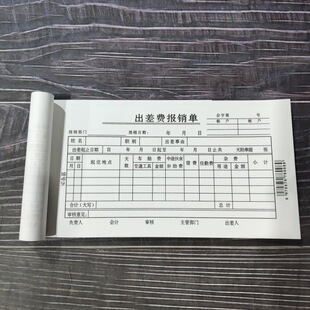 出差费报销单
会字第 号
帐户 帐户
报销部门 填报日期: 年 月 日
姓名 职别 出差事由
出差起止日期 自 年 月 日起至 年 月 日止共 天附单据 张
日期 起讫地点 天数 车船费 中途伙食补助费 宿费 住勤费 杂费 小计
月 日 交通工具 金额 用途 金额
合计(大写) 总计
审核意见:
负责人 会计 审核 主管部门 出差人